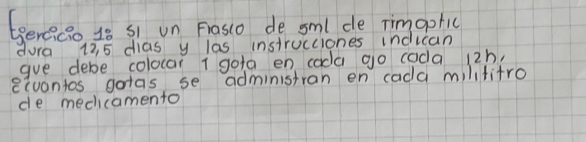 Egercicio 1: Si un Frasco de 5ml de Timoptic
dura 12,5 dias y las instrucciones indican
que debe colocar 1 gota en cada ojo cada 12h,
¿cuantas gotas se administran en cada mililitro
de medicamento